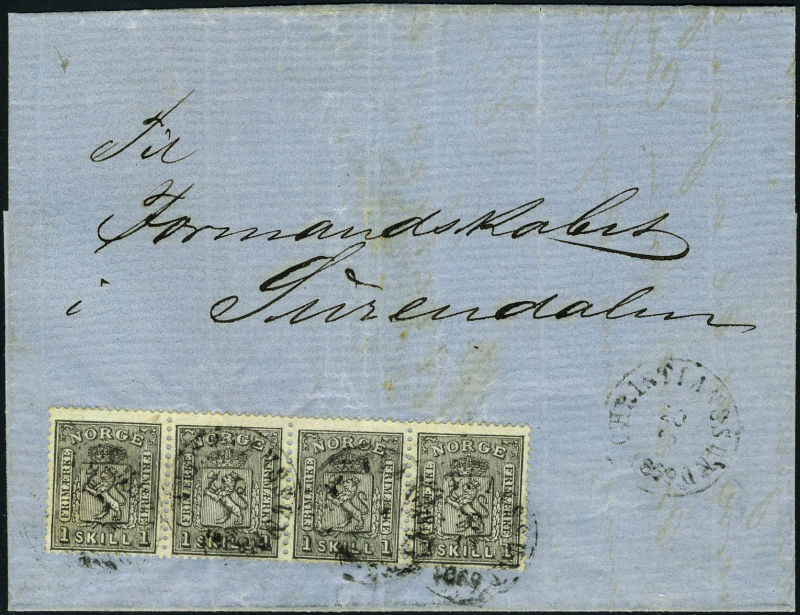 Til
Formandskabet
i Surendalen
CHRISTIANSSUND
23
1869
NORGE NORGE NORGE NORGE
FRIMERKE FRIMERKE FRIMERKE FRIMERKE FRIMERKE FRIMERKE FRIMERKE FRIMERKE
1 SKILL 1 1 SKILL 1 1 SKILL 1 1 SKILL 1
1869